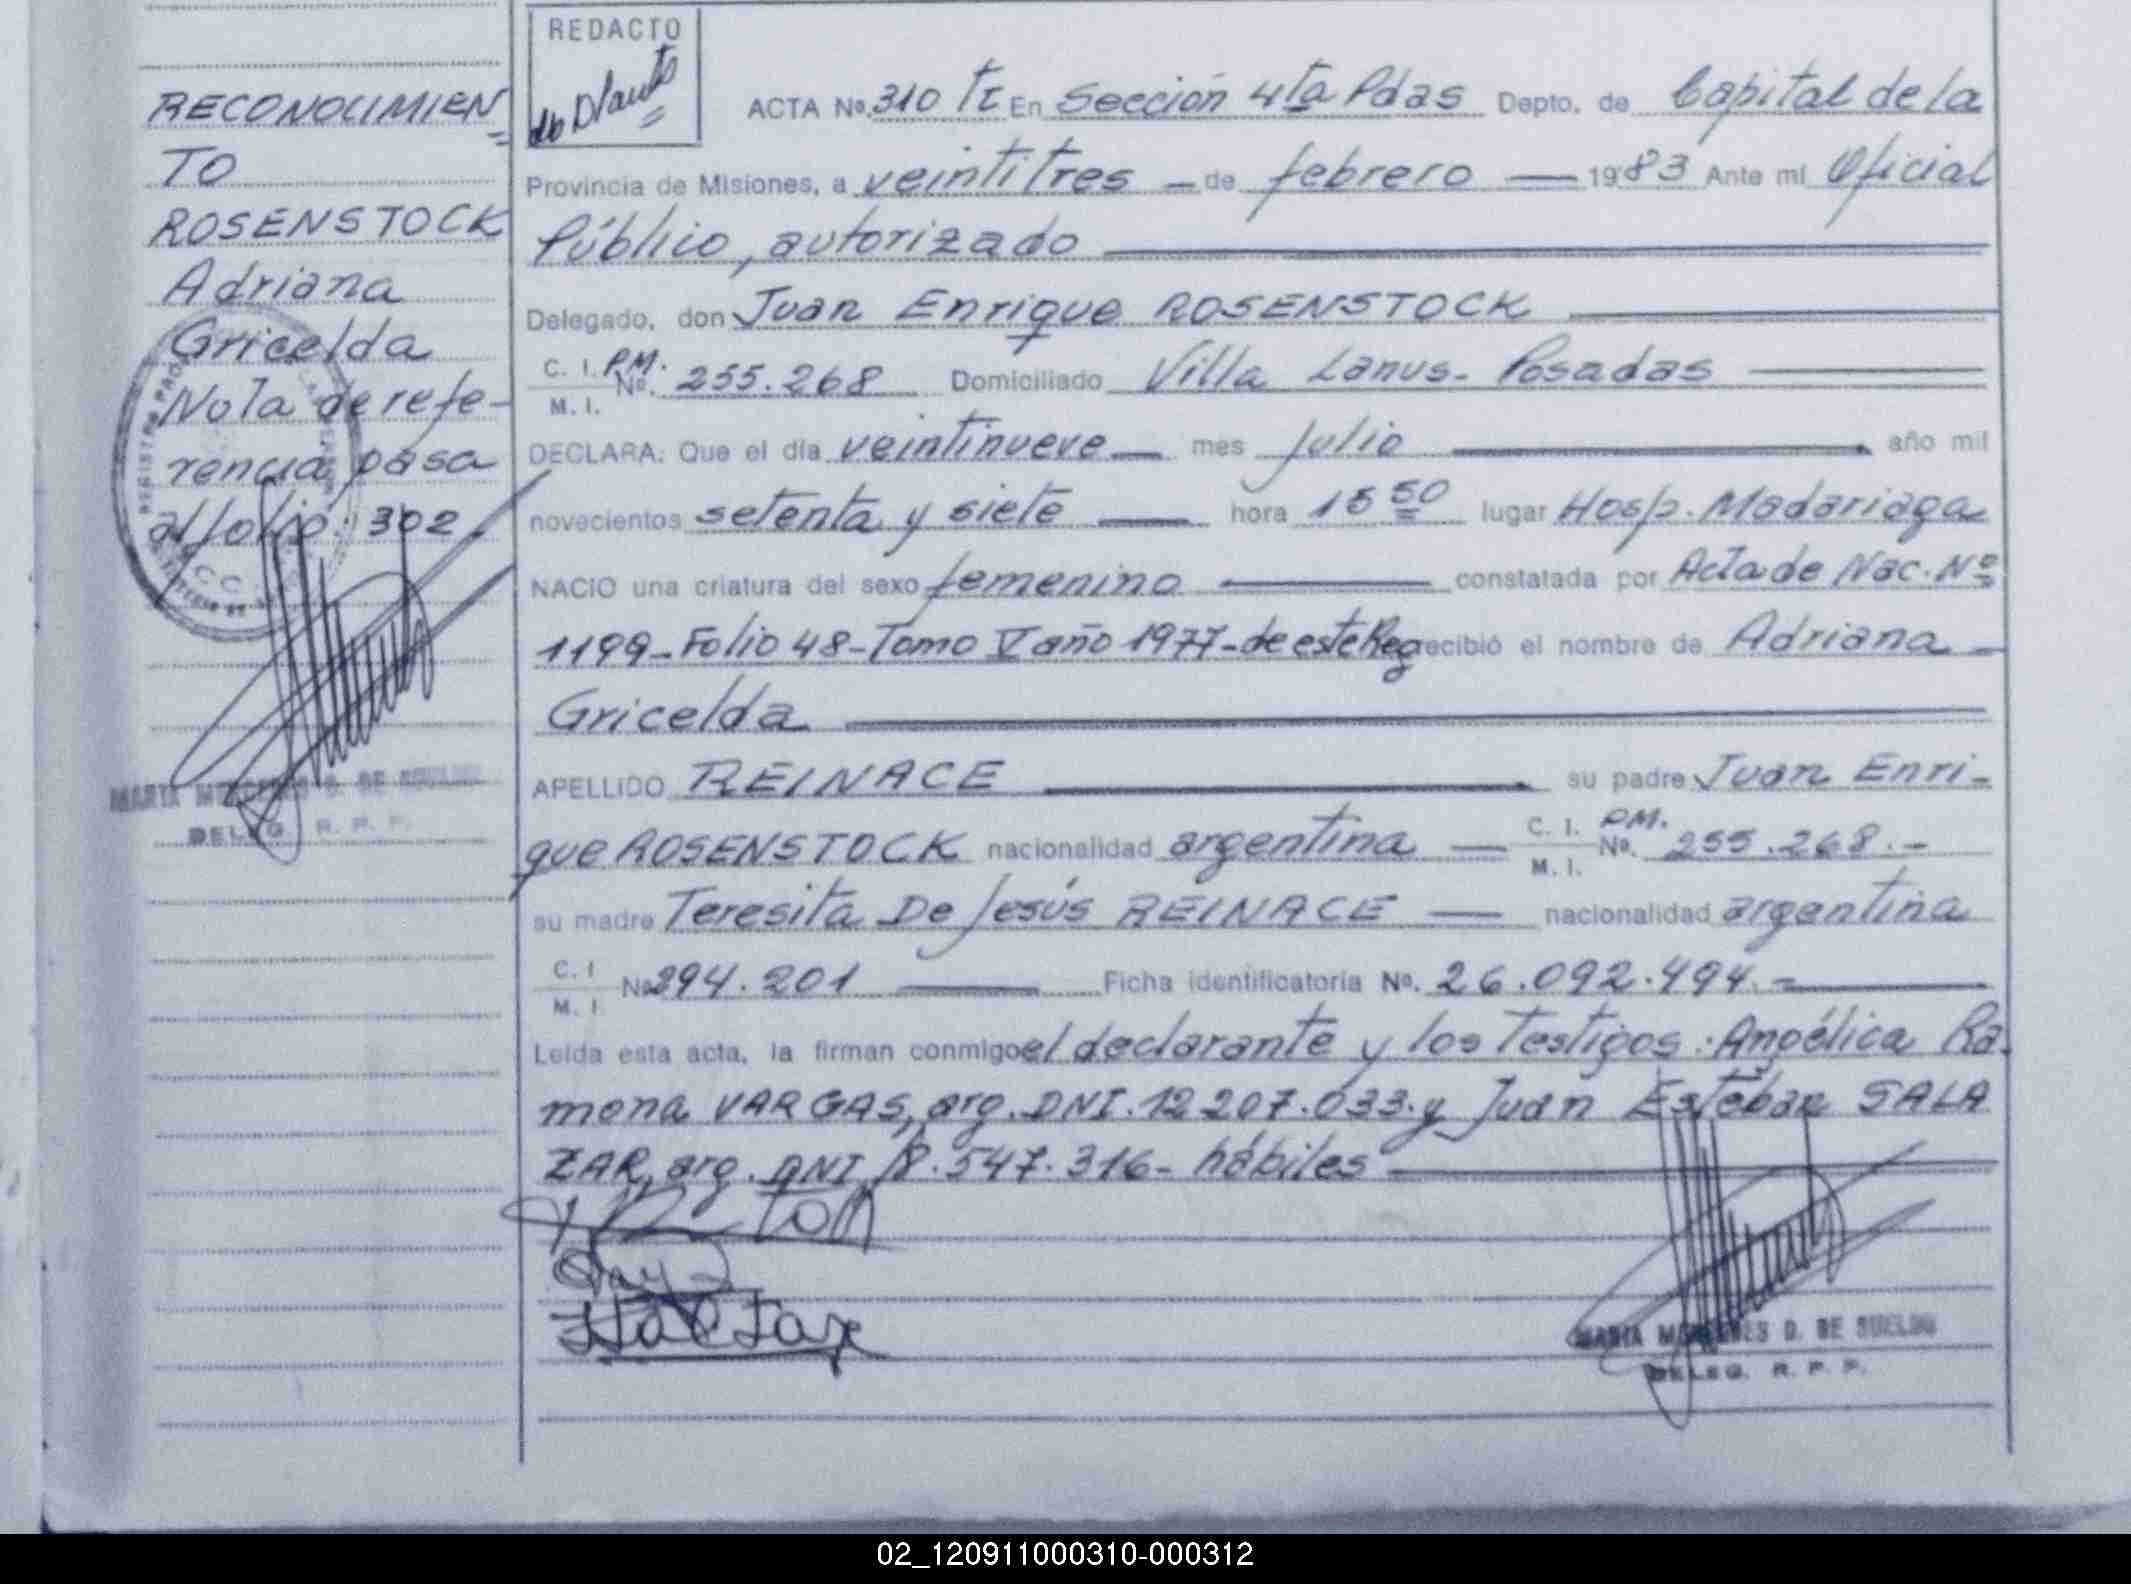 RECONOCIMIEN
TO
ROSENSTOCK
Adriana
Gricelda
Nota de refe-
rencia pasa
al folio: 302
MARIA MERCEDES D. DE SUELDO
DELEG. R. P. P.
REDACTO
ACTA No. 310 TI En Sección 4ta Pdas Depto. de Capital de la
Provincia de Misiones, a veintitres - de febrero - 1983 Ante mi Oficial
Público, autorizado
Delegado, don Juan Enrique ROSENSTOCK
C. I. P.M. No. 255.268 Domiciliado Villa Lanus- Posadas
M. I.
DECLARA: Que el día veintinueve - mes julio año mil
novecientos setenta y siete - hora 15 50 lugar Hosp. Madariaga
NACIO una criatura del sexo femenino constatada por Acta de Nac. Nº
1199-Folio 48-Tomo V año 1977-de este Reg recibió el nombre de Adriana -
Gricelda
APELLIDO REINACE su padre Juan Enri-
que ROSENSTOCK nacionalidad argentina - C. I. P.M. No. 255.268.-
M. I.
su madre Teresita De Jesús REINACE - nacionalidad argentina
C. I No 294.201 Ficha identificatoria No. 26.092.494.-
M. I.
Leída esta acta, la firman conmigo el declarante y los testigos: Angélica Ra-
mona VARGAS, arg. DNI. 12 207.033.y Juan Esteban SALA
ZAR, arg. DNI 8.547.316- hábiles
MARIA MERCEDES D. DE SUELDO
DELEG. R. P. P.
02_120911000310-000312